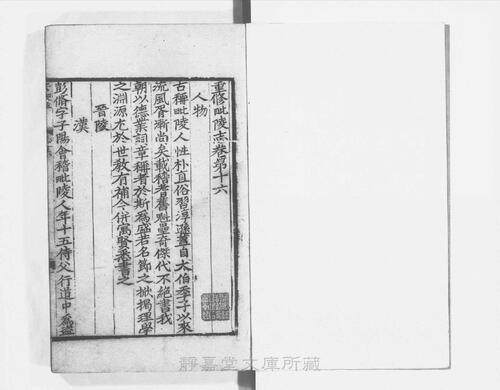 重修毗陵志卷第十六
人物
古稱毗陵人性朴直俗習浮遜蓋自太伯季子以來
流風胥漸尚矣載稽耆舊魁壘奇傑代不絕書我
朝以德業詞章稱者於斯為盛若名節之掀揭理學
之淵源尤於世教有補今併寓賢彙書之
晉陵
漢
彭脩字子陽會稽毗陵人年十五侍父行道中為盜
靜嘉堂文庫所藏